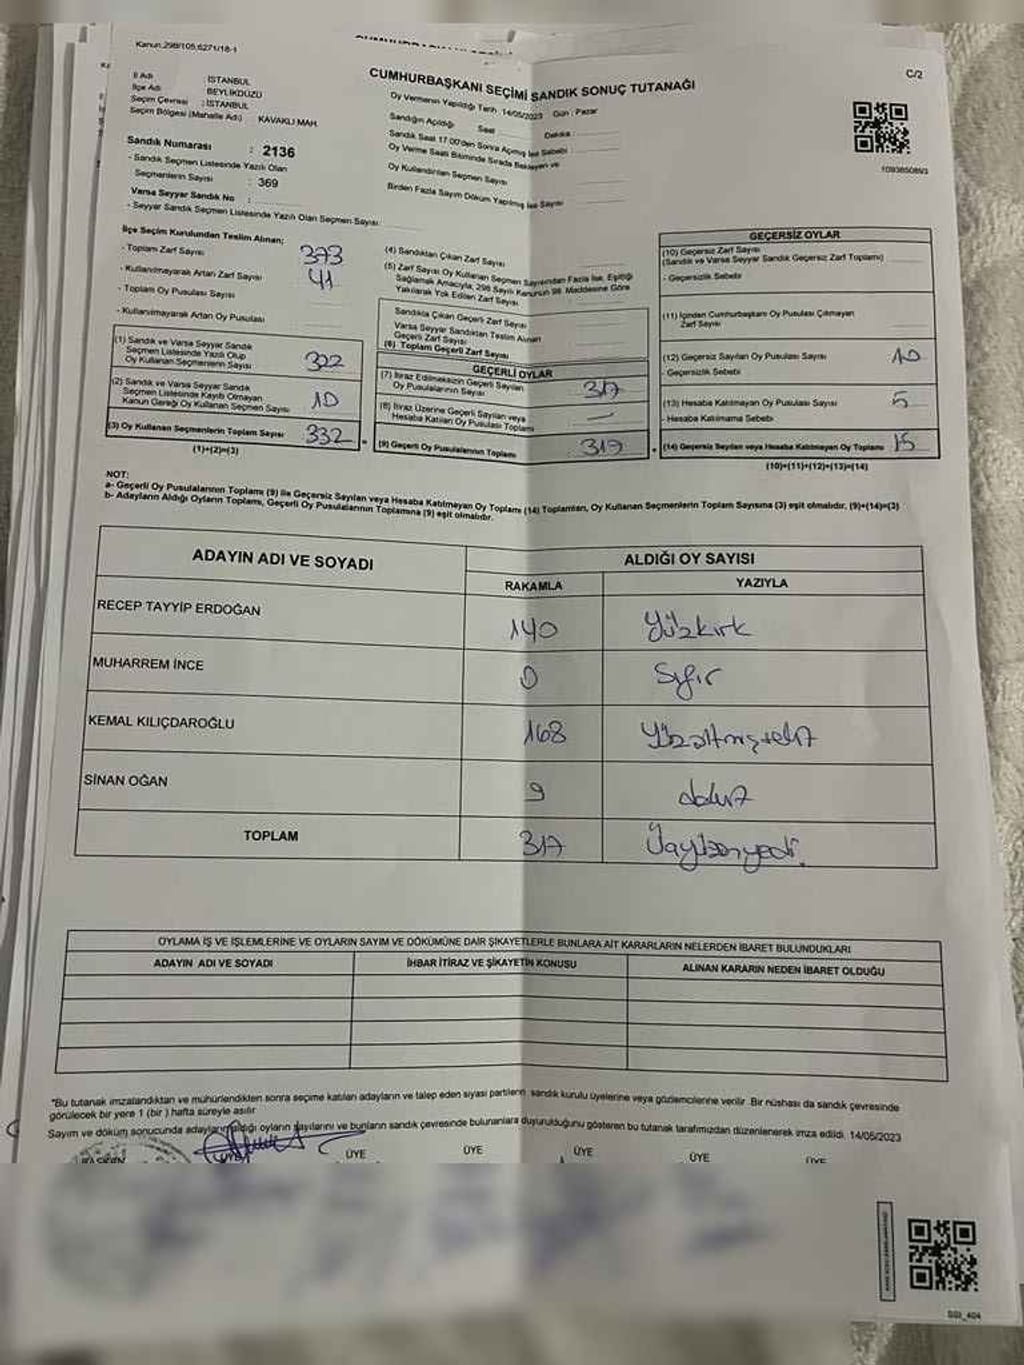 Kanun.298/105,6271/18-1
C/2
CUMHURBAŞKANI SEÇİMİ SANDIK SONUÇ TUTANAĞI
İl Adı : İSTANBUL
İlçe Adı : BEYLİKDÜZÜ
Seçim Çevresi : İSTANBUL
Seçim Bölgesi (Mahalle Adı) KAVAKLI MAH.
Sandık Numarası : 2136
- Sandık Seçmen Listesinde Yazılı Olan
Seçmenlerin Sayısı : 369
Varsa Seyyar Sandık No :
- Seyyar Sandık Seçmen Listesinde Yazılı Olan Seçmen Sayısı
Oy Vermenin Yapıldığı Tarih 14/05/2023 Gün : Pazar
Sandığın Açıldığı Saat Dakika :
Sandık Saat 17.00'den Sonra Açılmış İse Sebebi
Oy Verme Saati Bitiminde Sırada Bekleyen ve
Oy Kullandırılan Seçmen Sayısı
Birden Fazla Sayım Döküm Yapılmış İse Sayısı
İlçe Seçim Kurulundan Teslim Alınan;
- Toplam Zarf Sayısı 373
- Kullanılmayarak Artan Zarf Sayısı 41
- Toplam Oy Pusulası Sayısı
- Kullanılmayarak Artan Oy Pusulası
(1) Sandık ve Varsa Seyyar Sandık
Seçmen Listesinde Yazılı Olup
Oy Kullanan Seçmenlerin Sayısı 322
(2) Sandık ve Varsa Seyyar Sandık
Seçmen Listesinde Kayıtlı Olmayan
Kanun Gereği Oy Kullanan Seçmen Sayısı 10
(3) Oy Kullanan Seçmenlerin Toplam Sayısı 332
(1)+(2)=(3)
(4) Sandıktan Çıkan Zarf Sayısı
(5) Zarf Sayısı Oy Kullanan Seçmen Sayısından Fazla İse, Eşitliği
Sağlamak Amacıyla, 298 Sayılı Kanunun 98. Maddesine Göre
Yakılarak Yok Edilen Zarf Sayısı
Sandıkta Çıkan Geçerli Zarf Sayısı
Varsa Seyyar Sandıktan Teslim Alınan
Geçerli Zarf Sayısı
(6) Toplam Geçerli Zarf Sayısı
GEÇERLİ OYLAR
(7) İtiraz Edilmeksizin Geçerli Sayılan
Oy Pusulalarının Sayısı 317
(8) İtiraz Üzerine Geçerli Sayılan veya
Hesaba Katılan Oy Pusulası Toplamı —
(9) Geçerli Oy Pusulalarının Toplamı 317
GEÇERSİZ OYLAR
(10) Geçersiz Zarf Sayısı
(Sandık ve Varsa Seyyar Sandık Geçersiz Zarf Toplamı)
- Geçersizlik Sebebi
(11) İçinden Cumhurbaşkanı Oy Pusulası Çıkmayan
Zarf Sayısı
(12) Geçersiz Sayılan Oy Pusulası Sayısı 10
- Geçersizlik Sebebi
(13) Hesaba Katılmayan Oy Pusulası Sayısı 5
- Hesaba Katılmama Sebebi
(14) Geçersiz Sayılan veya Hesaba Katılmayan Oy Toplamı 15
(10)+(11)+(12)+(13)=(14)
NOT:
a- Geçerli Oy Pusulalarının Toplamı (9) ile Geçersiz Sayılan veya Hesaba Katılmayan Oy Toplamı (14) Toplamları, Oy Kullanan Seçmenlerin Toplam Sayısına (3) eşit olmalıdır. (9)+(14)=(3)
b- Adayların Aldığı Oyların Toplamı, Geçerli Oy Pusulalarının Toplamına (9) eşit olmalıdır.
ADAYIN ADI VE SOYADI ALDIĞI OY SAYISI
RAKAMLA YAZIYLA
RECEP TAYYİP ERDOĞAN 140 Yüzkırk
MUHARREM İNCE 0 Sıfır
KEMAL KILIÇDAROĞLU 168 Yüzaltmışsekiz
SİNAN OĞAN 9 dokuz
TOPLAM 317 Üçyüzonyedi.
OYLAMA İŞ VE İŞLEMLERİNE VE OYLARIN SAYIM VE DÖKÜMÜNE DAİR ŞİKAYETLERLE BUNLARA AİT KARARLARIN NELERDEN İBARET BULUNDUKLARI
ADAYIN ADI VE SOYADI İHBAR İTİRAZ VE ŞİKAYETİN KONUSU ALINAN KARARIN NEDEN İBARET OLDUĞU
"Bu tutanak imzalandıktan ve mühürlendikten sonra seçime katılan adayların ve talep eden siyasi partilerin sandık kurulu üyelerine veya gözlemcilerine verilir. Bir nüshası da sandık çevresinde
görülecek bir yere 1 (bir) hafta süreyle asılır
Sayım ve döküm sonucunda adayların aldığı oyların sayılarını ve bunların sandık çevresinde bulunanlara duyurulduğunu gösteren bu tutanak tarafımızdan düzenlenerek imza edildi. 14/05/2023
BAŞKAN ÜYE ÜYE ÜYE ÜYE ÜYE